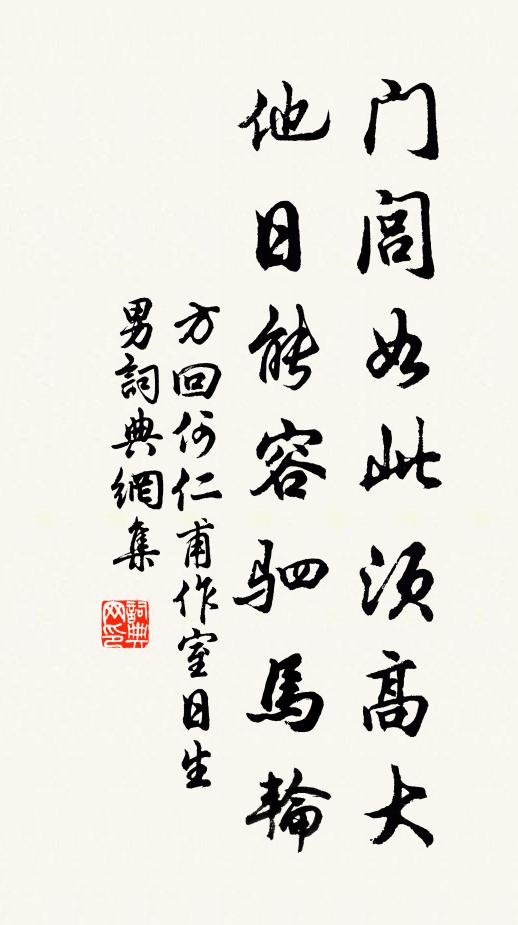 门闾如此须高大
他日能容驷馬輪
方回何仁甫作室日生
男詞典網集
詞典网印